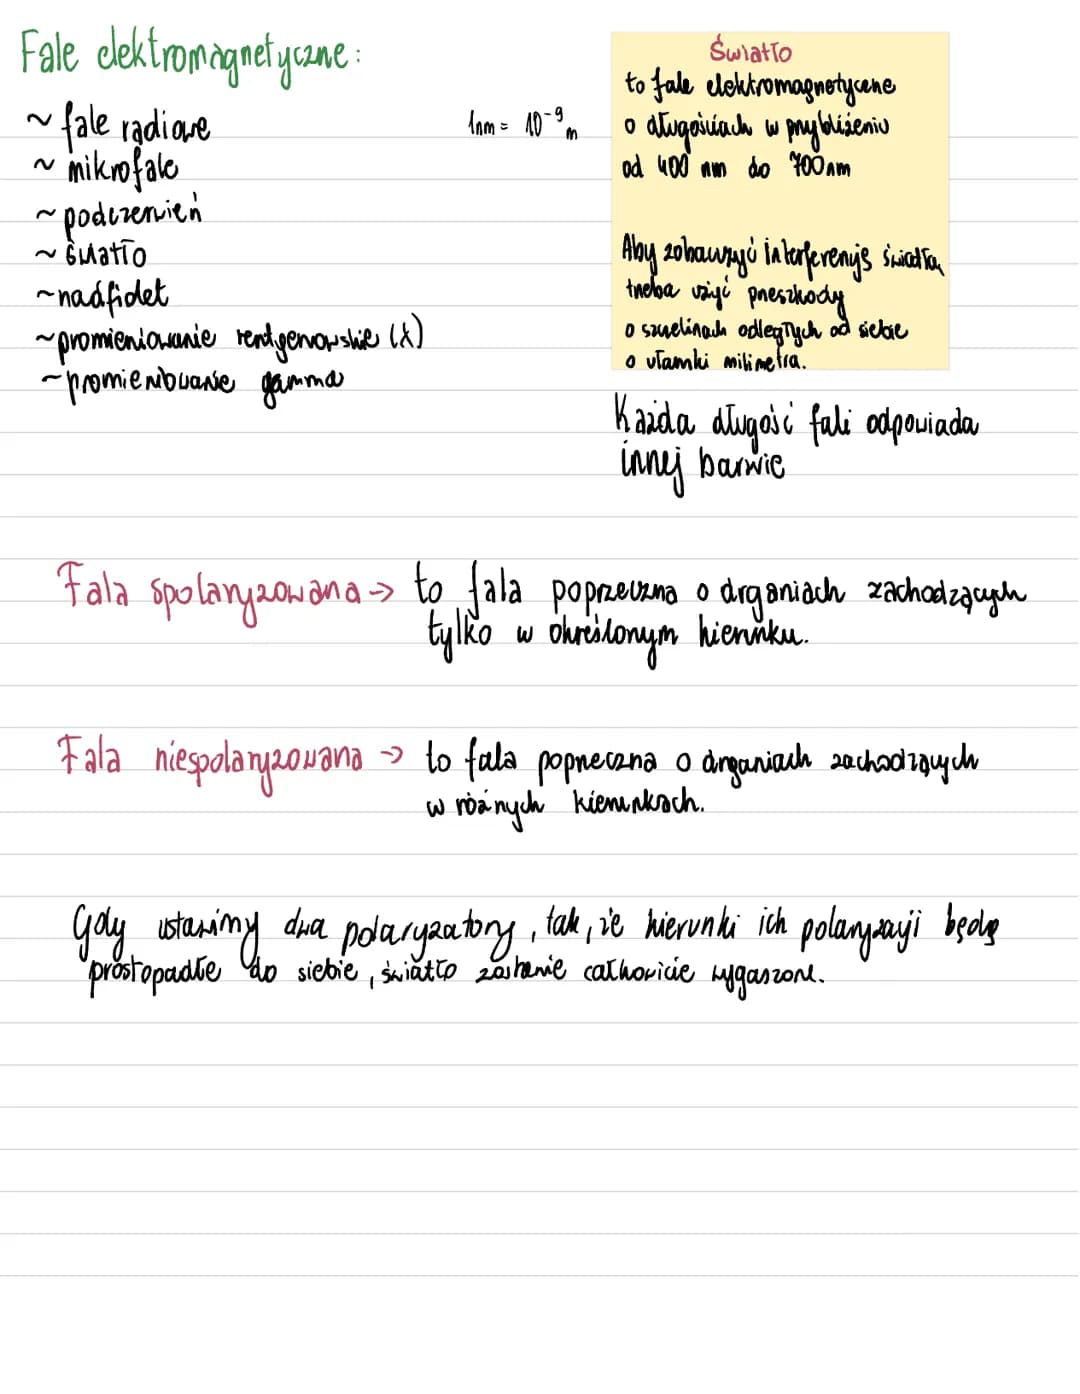 Fale elektromagnetyczne:
~ fale radiowe
~ mikrofale
~ podczerwień
~ światło
~ nadfiolet
~ promieniowanie rentgenowskie (X)
~ promieniowanie gamma
1nm = 10⁻⁹ m
Światło
to fale elektromagnetyczne
o długościach w przybliżeniu
od 400 nm do 700nm
Aby zobaczyć interferencję światła,
trzeba użyć przeszkody
o szczelinach odległych od siebie
o ułamki milimetra.
Każda długość fali odpowiada
innej barwie
Fala spolaryzowana -> to fala poprzeczna o drganiach zachodzących
tylko w określonym kierunku.
Fala niespolaryzowana -> to fala poprzeczna o drganiach zachodzących
w różnych kierunkach.
Gdy ustawimy dwa polaryzatory, tak, że kierunki ich polaryzacji będą
prostopadłe do siebie, światło zostanie całkowicie wygaszone.